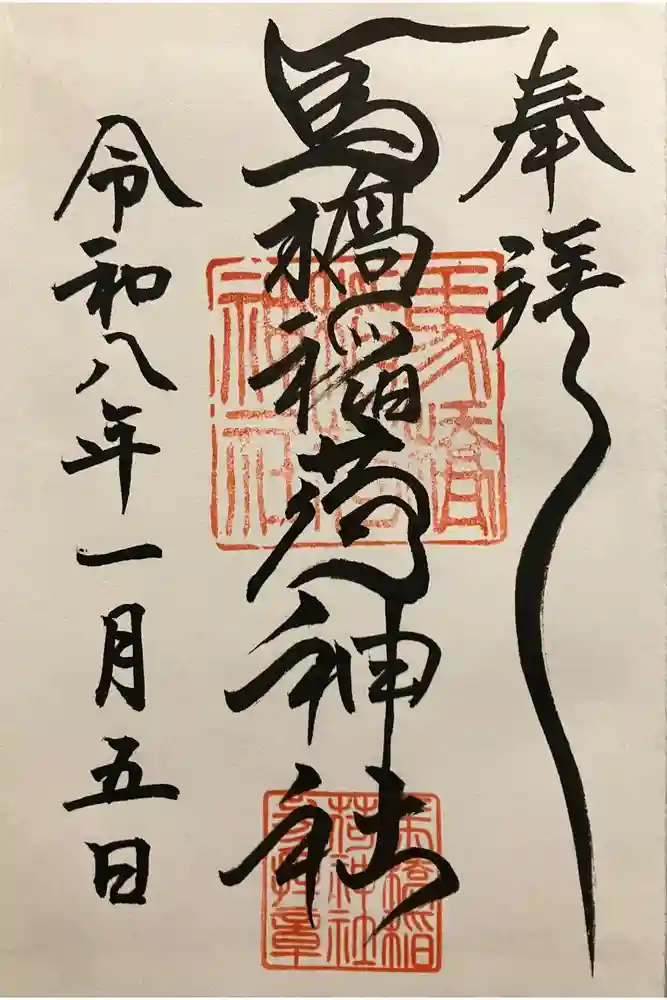 奉拝
馬橋稲荷神社
令和八年一月五日
馬橋
稲荷
神社
馬橋稲
荷神社
参拝章